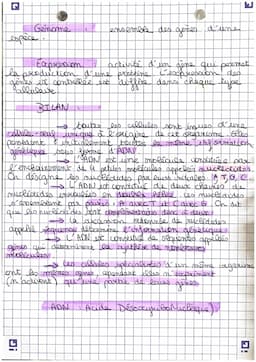 Génome : ensemble des gènes d'une
espèce.
Expression : activité d'un gène qui permet
la production d'une protéine. L'expression des
gènes est contrôlée et diffère dans chaque type
cellulaire.
BILAN :
→ toutes les cellules sont issues d'une
cellule-œuf unique à l'origine de cet organisme. Elles
possèdent initialement toutes la même information
génétique sous forme d'ADN.
→ L'ADN est une molécule constituée par
l'enchaînement de petites molécules appelées nucléotides.
On désigne les nucléotides par leurs initiales A, T, G, C.
→ L'ADN est constitué de deux chaînes de
nucléotides enroulées en double hélice. Les nucléotides
s'assemblent par paires : A avec T et C avec G. On dit
que les nucléotides sont complémentaires deux à deux.
→ la succession de nucléotides
appelée séquence détermine l'information génétique.
→ L'ADN est constitué de séquences appelées
gènes qui déterminent la synthèse de
molécules.
→ les cellules spécialisées d'un même organisme
ont les mêmes gènes, cependant elles n'expriment
(n'activent) qu'une partie de leurs gènes.
ADN : Acide Désoxyribonucléique)